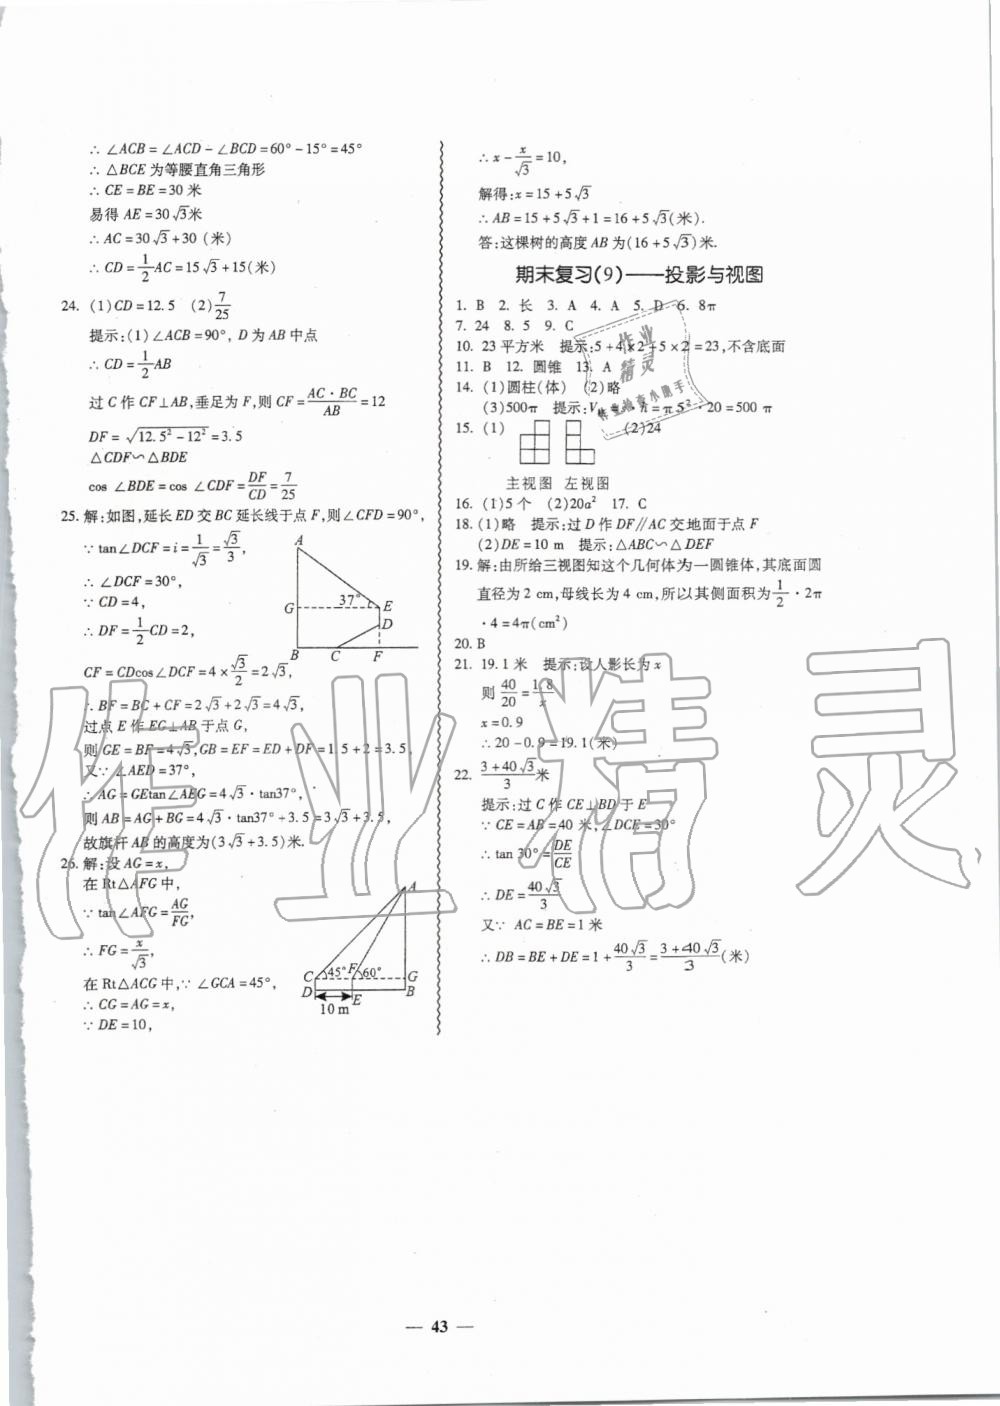 ∴ ∠ACB = ∠ACD - ∠BCD = 60° - 15° = 45°
∴ △BCE 为等腰直角三角形
∴ CE = BE = 30 米
易得 AE = 30√3米
∴ AC = 30√3 + 30 (米)
∴ CD = 1/2 AC = 15√3 + 15(米)
24. (1)CD = 12.5 (2) 7/25
提示:(1)∠ACB = 90°, D 为 AB 中点
∴ CD = 1/2 AB
过 C 作 CF⊥AB,垂足为 F,则 CF = AC·BC/AB = 12
DF = √(12.5² - 12²) = 3.5
△CDF∽△BDE
cos ∠BDE = cos ∠CDF = DF/CD = 7/25
25. 解:如图,延长 ED 交 BC 延长线于点 F,则∠CFD = 90°,
∵ tan∠DCF = i = 1/√3 = √3/3,
∴ ∠DCF = 30°,
∵ CD = 4,
∴ DF = 1/2 CD = 2,
A
G
37°
E
D
B
C
F
CF = CDcos∠DCF = 4 × √3/2 = 2√3,
∴ BF = BC + CF = 2√3 + 2√3 = 4√3,
过点 E 作 EG⊥AB 于点 G,
则 GE = BF = 4√3,GB = EF = ED + DF = 1.5 + 2 = 3.5,
又∵ ∠AED = 37°,
∴ AG = GEtan∠AEG = 4√3·tan37°,
则 AB = AG + BG = 4√3·tan37° + 3.5 = 3√3 + 3.5,
故旗杆 AB 的高度为(3√3 + 3.5)米.
26. 解:设 AG = x,
在 Rt△AFG 中,
∵ tan∠AFG = AG/FG,
∴ FG = x/√3,
在 Rt△ACG 中,∵ ∠GCA = 45°,
∴ CG = AG = x,
∵ DE = 10,
A
C
45°
F
60°
G
D
E
B
10 m
∴ x - x/√3 = 10,
解得:x = 15 + 5√3
∴ AB = 15 + 5√3 + 1 = 16 + 5√3(米).
答:这棵树的高度 AB 为(16 + 5√3)米.
期末复习(9)——投影与视图
1. B 2. 长 3. A 4. A 5. D 6. 8π
7. 24 8. 5 9. C
10. 23 平方米 提示:5 + 4×2 + 5×2 = 23,不含底面
11. B 12. 圆锥 13. A
14. (1)圆柱(体) (2)略
(3)500π 提示:V · h = π5²·20 = 500 π
15. (1) (2)24
主视图 左视图
16. (1)5 个 (2)20a² 17. C
18. (1)略 提示:过 D 作 DF∥AC 交地面于点 F
(2)DE = 10 m 提示:△ABC∽△DEF
19. 解:由所给三视图知这个几何体为一圆锥体,其底面圆
直径为 2 cm,母线长为 4 cm,所以其侧面积为 1/2 · 2π
· 4 = 4π(cm²)
20. B
21. 19.1 米 提示:设人影长为 x
则 40/20 = 1.8/x
x = 0.9
∴ 20 - 0.9 = 19.1(米)
22. (3 + 40√3)/3 米
提示:过 C 作 CE⊥BD 于 E
∵ CE = AB = 40 米,∠DCE = 30°
∴ tan 30° = DE/CE
∴ DE = 40√3/3
又∵ AC = BE = 1 米
∴ DB = BE + DE = 1 + 40√3/3 = (3 + 40√3)/3 (米)
作业精灵
作业
精灵
作业检查小助手
— 43 —